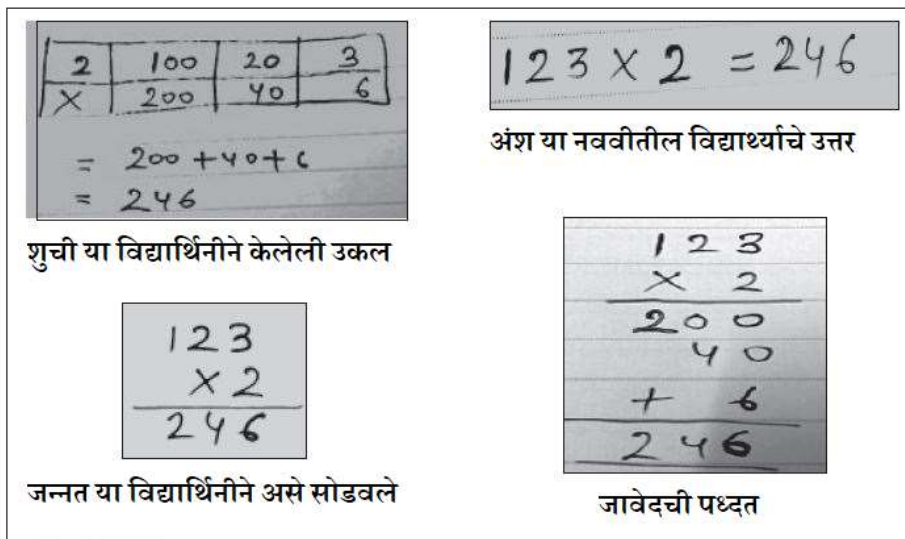 2 100 20 3
X 200 40 6
= 200 + 40 + 6
= 246
शुची या विद्यार्थिनीने केलेली उकल
123 X 2 = 246
अंश या नववीतील विद्यार्थ्याचे उत्तर
123
X 2
246
जन्नत या विद्यार्थिनीने असे सोडवले
1 2 3
X 2
2 0 0
4 0
+ 6
2 4 6
जावेदची पध्दत